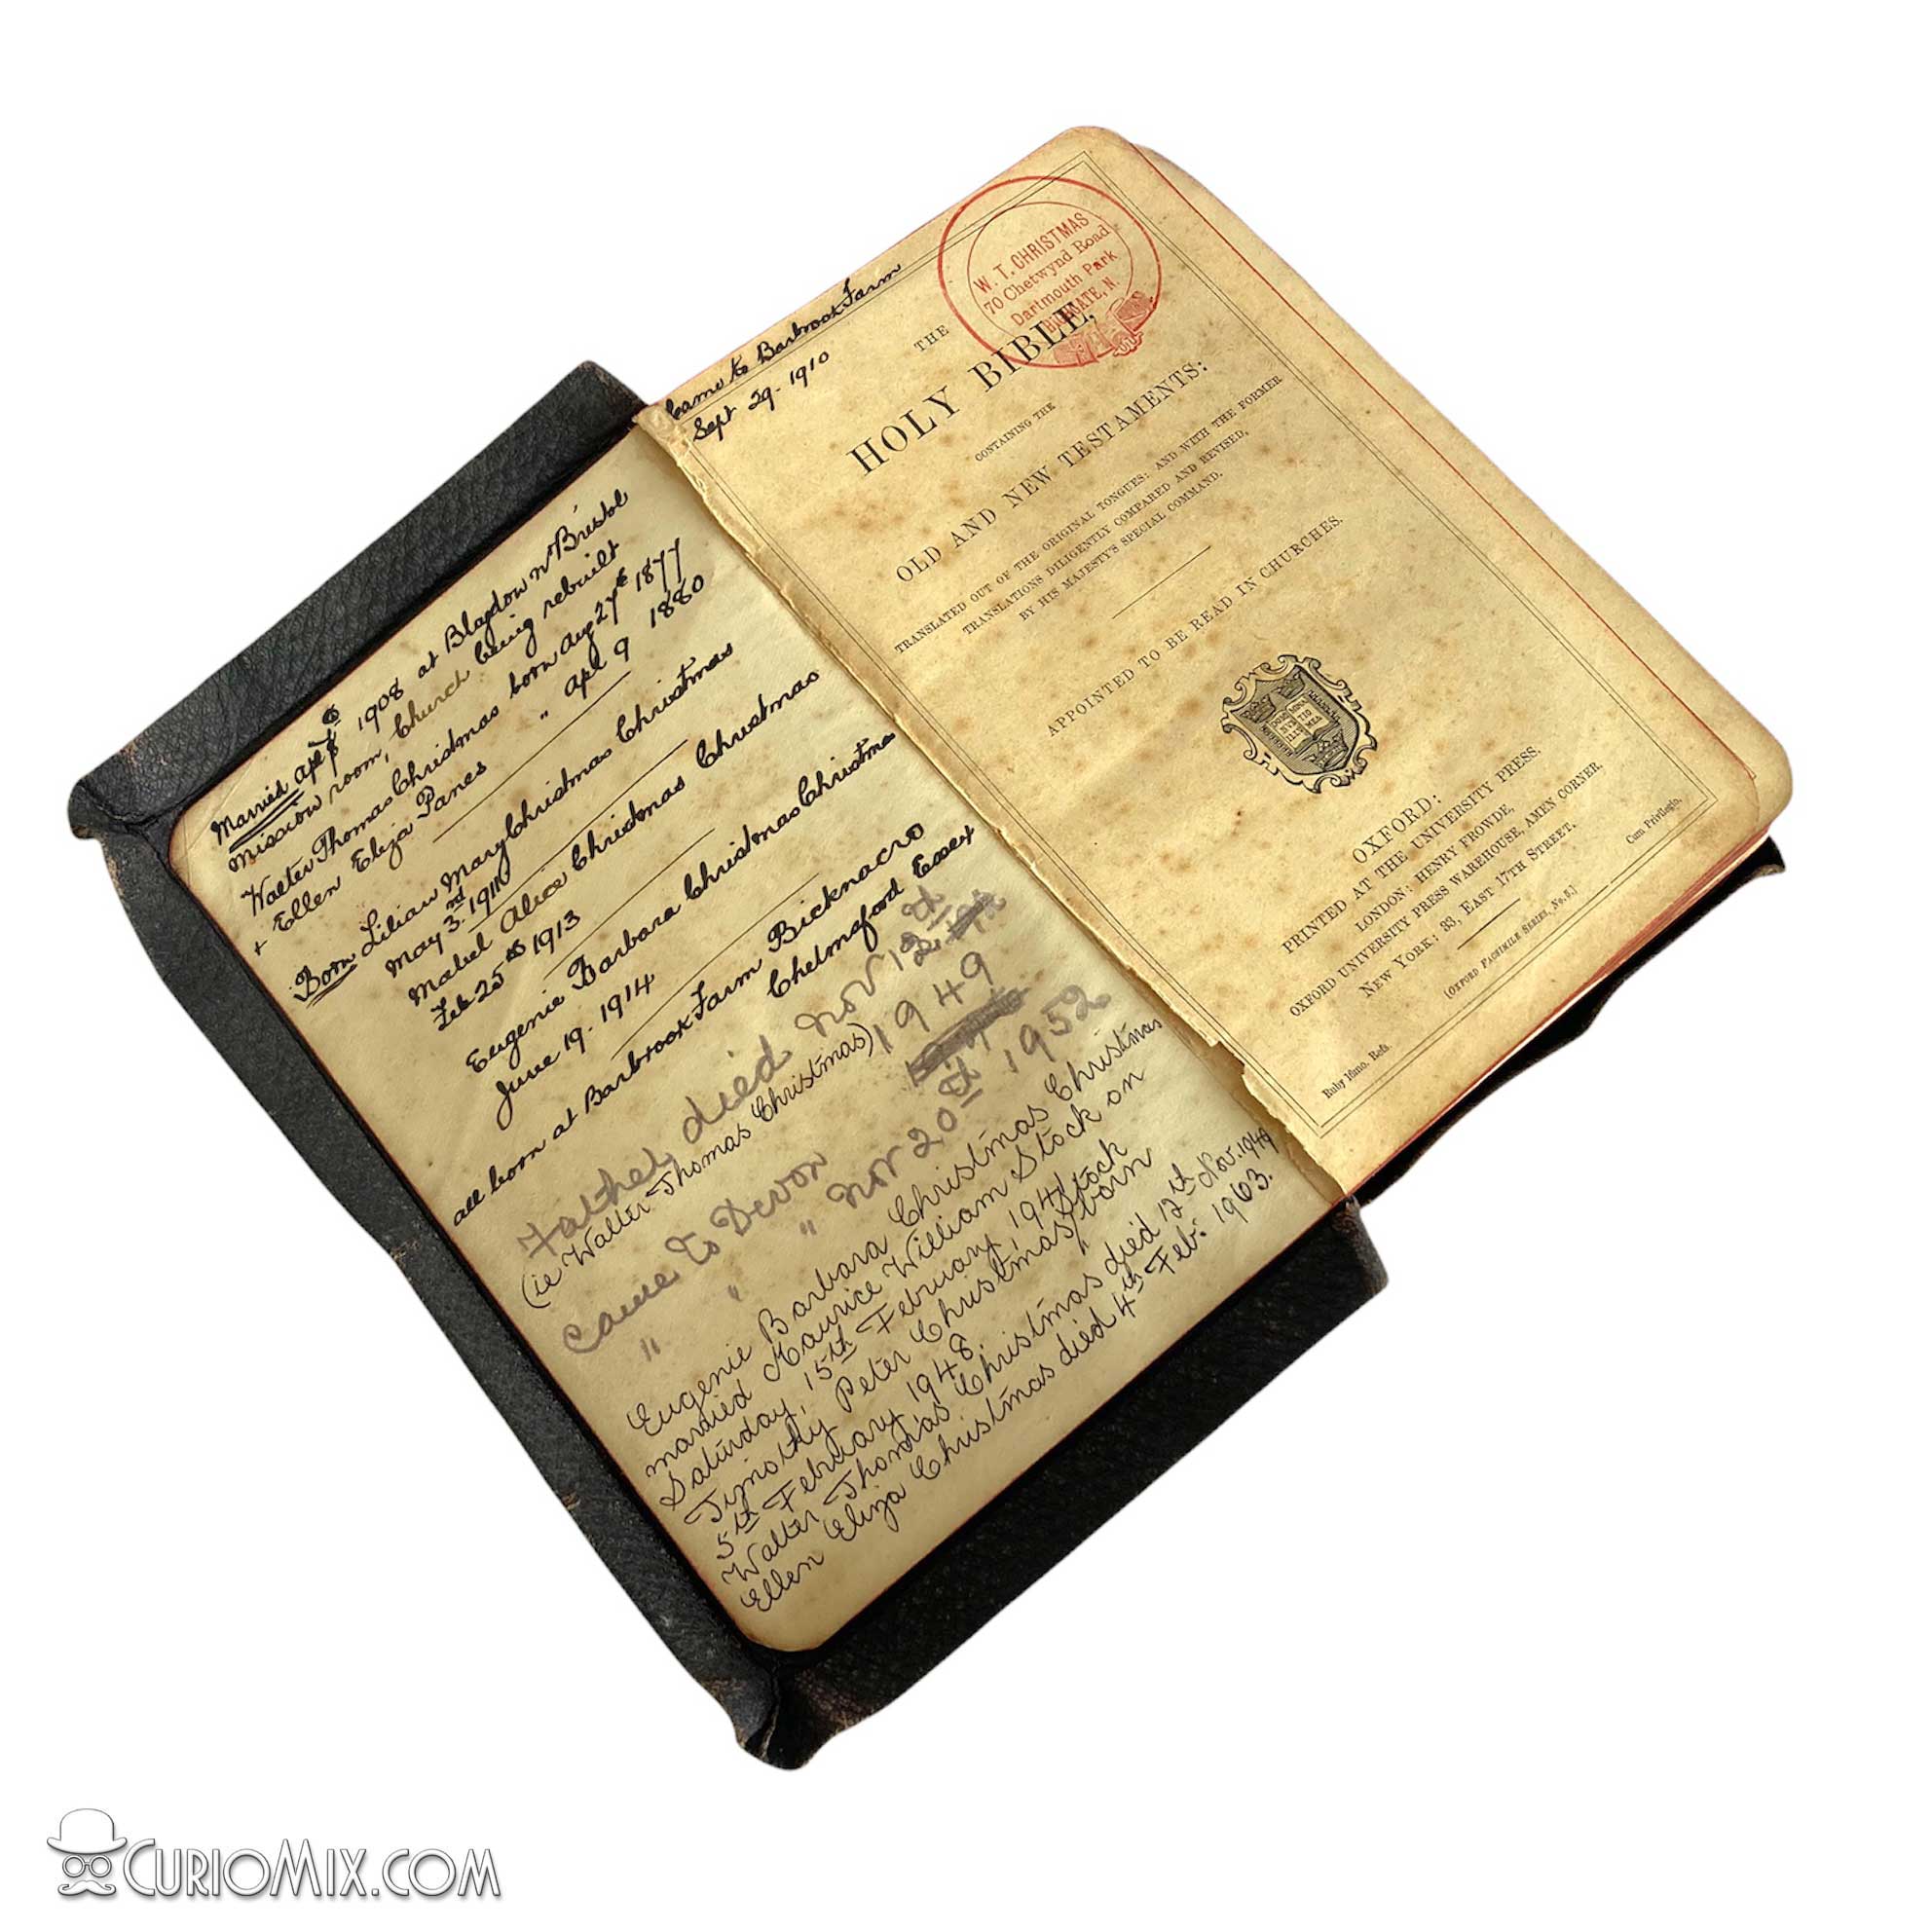 Married Apl 1908 at Blagdon nr Bristol
Mission room, Church being rebuilt
Walter Thomas Christmas born Aug 27th 1877
+ Ellen Eliza Panes " Apl 9 1880
Born Lilian Mary Christmas Christmas
May 3rd 1911
Mabel Alice Christmas Christmas
Feb 25th 1913
Eugenie Barbara Christmas Christmas
June 19. 1914
all born at Barbrook Farm Bicknacro
Chelmsford Essex
Father died Nov 12th
(ie Walter Thomas Christmas) 1949
came to Devon
" " " Nov 20th 1952
Eugenie Barbara Christmas Christmas
married Maurice William Stock on
Saturday, 15th February, 1941
Timothy Peter Christmas Stock born
5th February, 1948.
Walter Thomas Christmas died 12th Nov. 1949
Ellen Eliza Christmas died 4th Feb. 1963.
Came to Barbrook Farm
Sept 29. 1910
W. T. CHRISTMAS
70 Chetwynd Road
Dartmouth Park
HIGHGATE, N.
THE
HOLY BIBLE,
CONTAINING THE
OLD AND NEW TESTAMENTS:
TRANSLATED OUT OF THE ORIGINAL TONGUES: AND WITH THE FORMER
TRANSLATIONS DILIGENTLY COMPARED AND REVISED,
BY HIS MAJESTY'S SPECIAL COMMAND.
APPOINTED TO BE READ IN CHURCHES.
DOMI MINA
NUS TIO
ILLU MEA
OXFORD:
PRINTED AT THE UNIVERSITY PRESS.
LONDON: HENRY FROWDE,
OXFORD UNIVERSITY PRESS WAREHOUSE, AMEN CORNER.
NEW YORK: 33, EAST 17TH STREET.
Ruby 16mo. Refs.
(OXFORD FACSIMILE SERIES, No. 5.)
Cum Privilegio.
CURIOMIX.COM